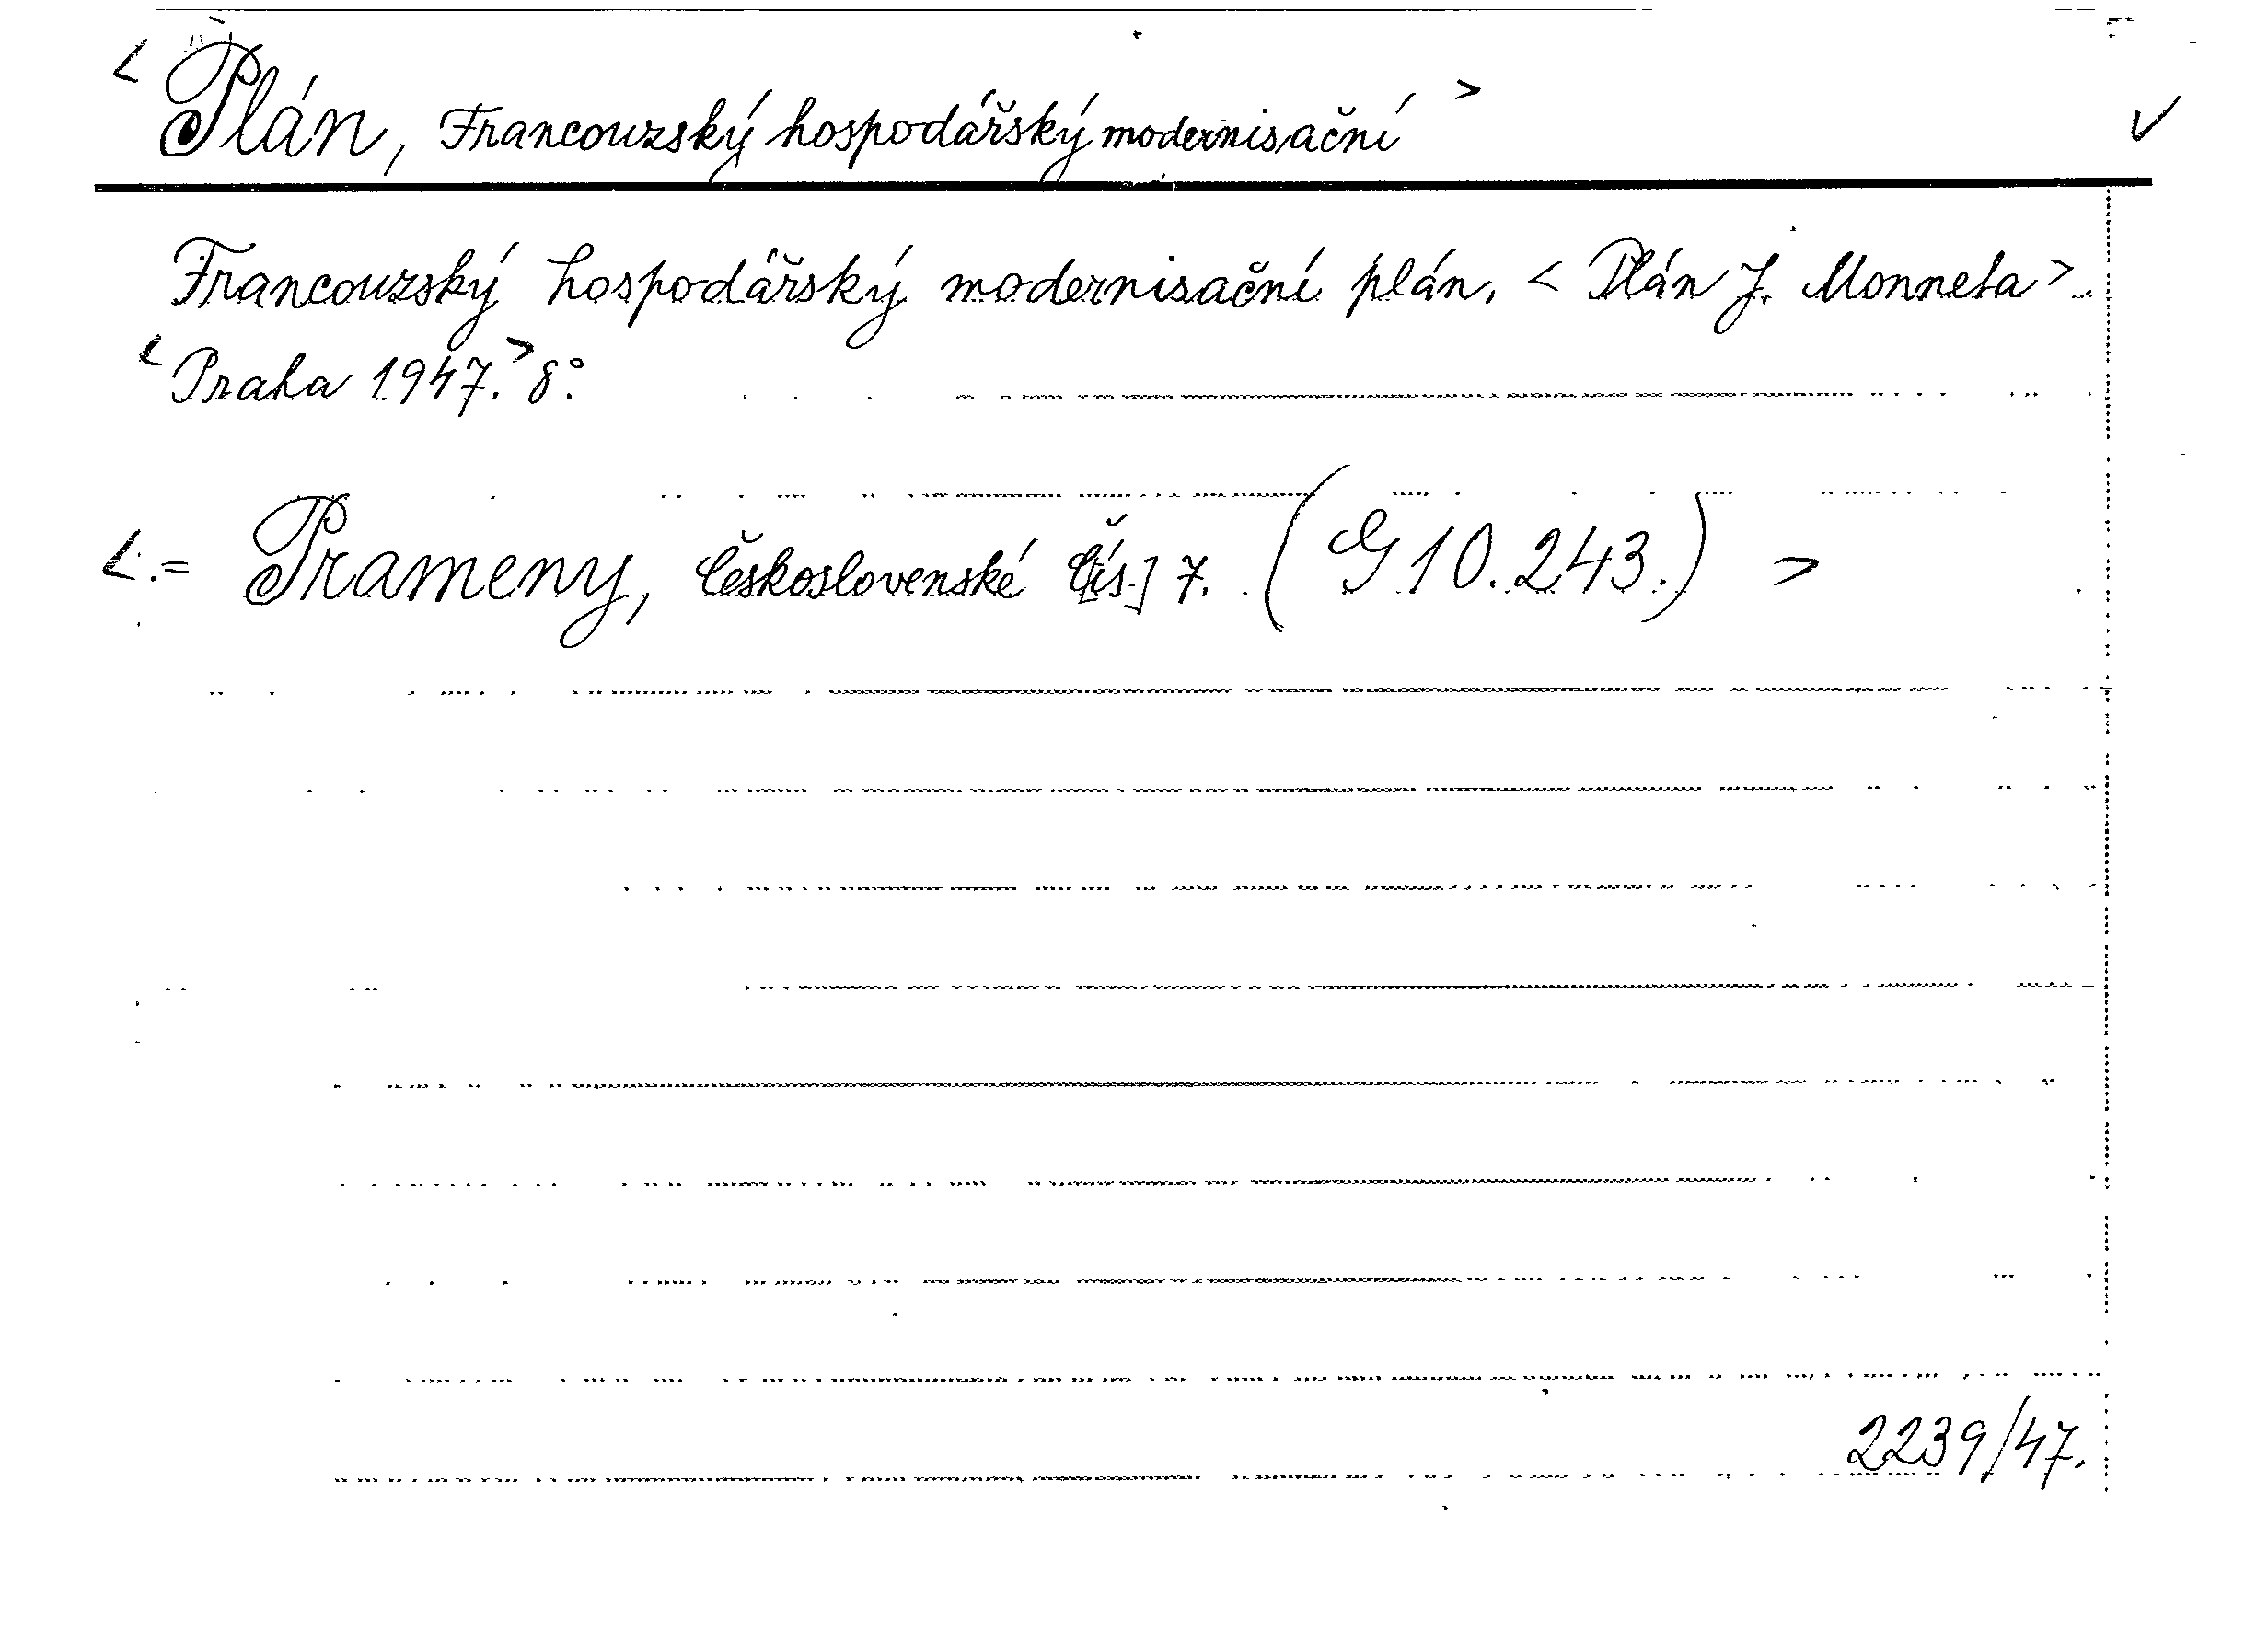 < Plán, Francouzský hospodářský modernisační > ✓
Francouzský hospodářský modernisační plán. < Plán J. Monneta >.
< Praha 1947. > 8°.
< = Prameny, Československé Čís.] 7. (G 10.243.) >
2239/47.